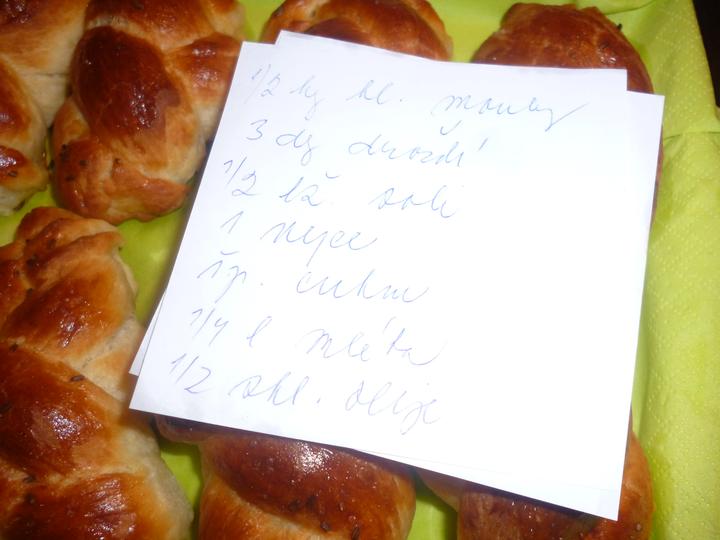 1/2 kg hl. mouky
3 dg droždí
1/2 lž. soli
1 vejce
šp. cukru
1/4 l mléka
1/2 skl. oleje